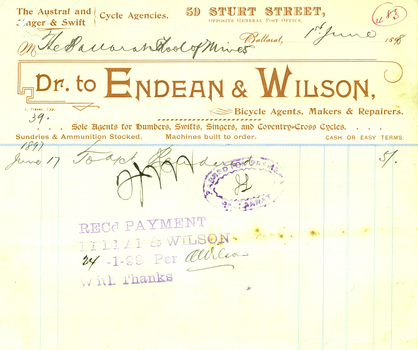 The Austral and
Singer & Swift
Cycle Agencies.
59 STURT STREET,
OPPOSITE GENERAL POST OFFICE,
Ballarat, 1st June 1898
M The Ballarat School of Mines
DR. to ENDEAN & WILSON,
Bicycle Agents, Makers & Repairers.
39.
Sole Agents for Humbers, Swifts, Singers, and Coventry-Cross Cycles.
Sundries & Ammunition Stocked. Machines built to order. CASH OR EASY TERMS.
1897
June 17 To acct Rendered 5/-
RECD PAYMENT
& WILSON
24 -1-99 Per AWilson
With Thanks